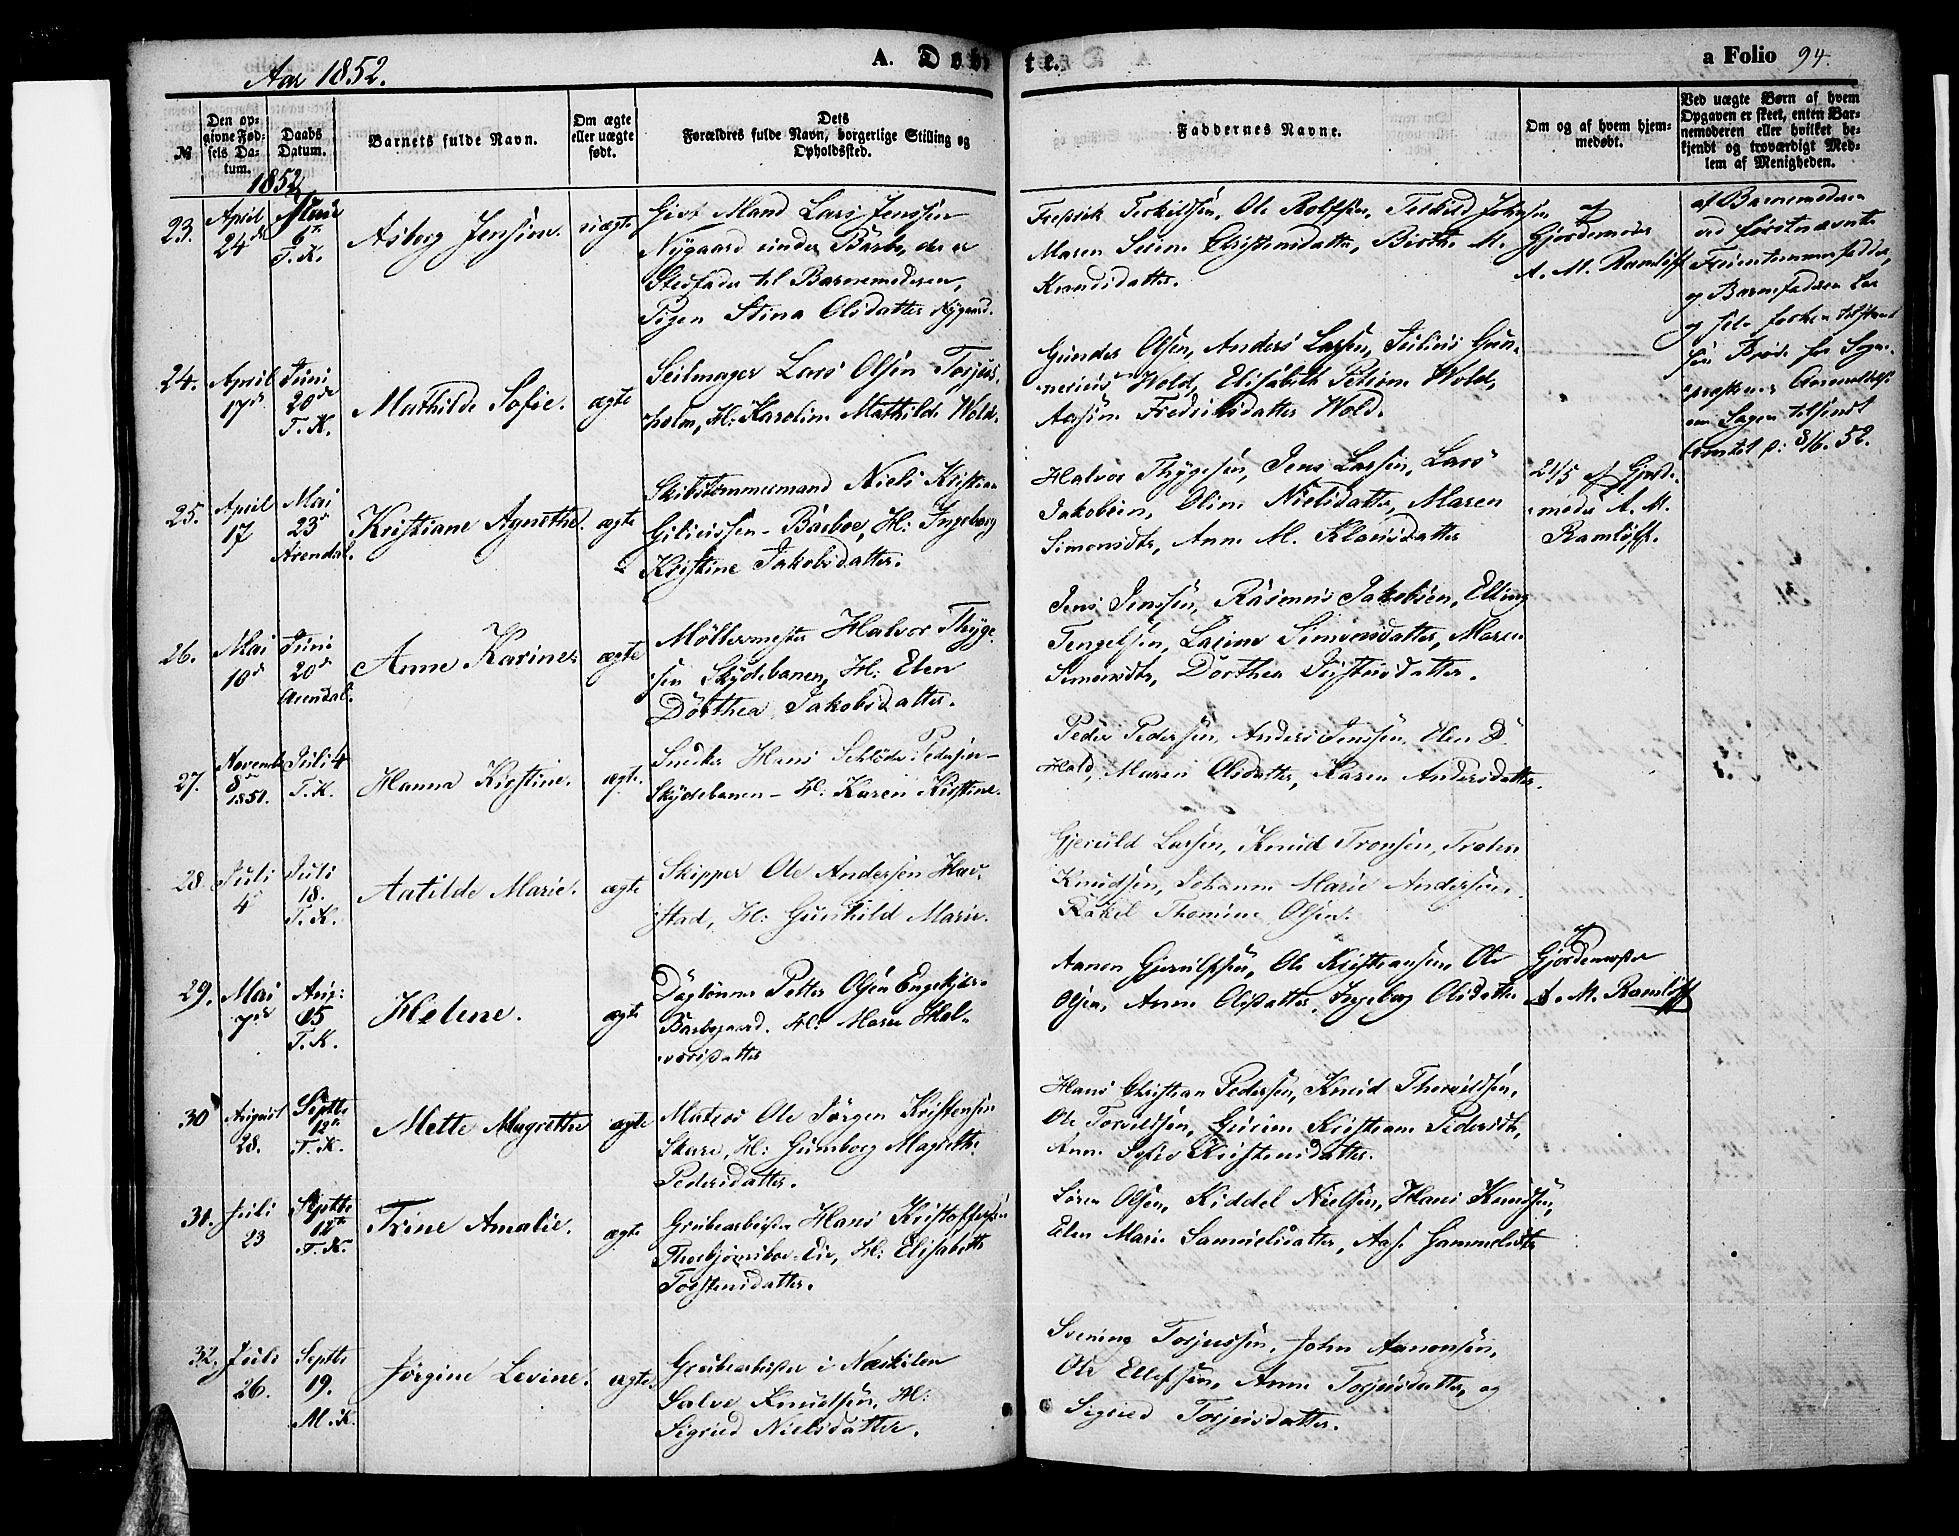 Aar 1852.
A. Døbte.
a Folio 94.
№
Den opgivne Fødsels Datum.
Daabs Datum.
Barnets fulde Navn.
Om ægte eller uægte født.
Dets Forældres fulde Navn, borgerlige Stilling og Opholdssted.
Faddernes Navne.
Om og af hvem hjemmedøbt.
Ved uægte Børn af hvem Opgaven er skeet, enten Barnemoderen eller hvilket bekjendt og troværdigt Medlem af Menigheden.
1852
23.
April
24de
Juni
6te
T. K.
Asborg Jensine.
uægte
Givt Mand Lars Jenssen
Nygaard under Barbo, der er
Stedfader til Barnemoderen,
Pigen Stina Olsdatter Nygaard.
Fredrik Terkildsen, Ole Rolfsen, Terkild Johnsen
Maren Serine Christensdatter, Birthe M.
Knudsdatter.
af
Gjordemoder
A. M. Ramløff
af Barnemoderen
ved førstnævnte
Fruentimmerfadder,
og Barnefaderen Lars
24.
April
17de
Juni
20de
T. K.
Mathilde Sofie.
ægte
Seilmager Lars Olsen Torjus-
holm, H: Karoline Mathilde Wold.
Gunder Olsen, Anders Larsen, Julius Gun-
nerius Wold, Elisabeth Petrine Wold,
Aasine Fredriksdatter Wold.
om Sagen tilsendt
25.
April
17
Mai
23de
Arendal.
Kristiane Agnethe.
ægte
Skibstømmermand Niels Kristian
Barboe, H: Ingeborg
Kristine Jakobsdatter.
Halvor Thygesen, Jens Larsen, Lars
Jakobsen, Oline Nielsdatter, Maren
Simonsdtr, Anne M. Klausdatter
21/5 af Gjord-
moder A. M.
Ramløff.
26.
Mai
10de
Juni
20de
Arendal.
Anne Karine
ægte
Møllermester Halvor Thyge-
sen Skydebanen, H: Elen
Dorthea Jakobsdatter.
Jens Jenssen, Rasmus Jakobsen, Elling
Tengelsen, Lasine Simonsdatter, Maren
Simonsdtr, Dorthea Kristensdatter.
27.
Novemb
8de
1851.
Juli 4
T. K.
Hanna Kristine.
ægte.
Snedker Hans Schlöde Pedersen
Skydebanen - H: Karen Kristine.
Peder Pedersen, Anders Jenssen, Elen D.
Hald, Maren Olsdatter, Karen Andersdatter.
28.
Juli
4
Juli
18.
T. K.
Aatilde Marie.
ægte
Skipper Ole Andersen Hav-
stad, H: Gunhild Marie.
Gjeruld Larsen, Knud Tronsen, Troten
Knudsen, Johanne Marie Andersen.
Rakel Thomine Olsen.
29.
Mai
7de
Aug:
15
T. K.
Helene.
ægte
Daglønner Petter Olsen Engekjær
Barbogaard. H: Maren Hal-
vorsdatter
Aanon Gjerulfsen, Ole Kristiansen, Ole
Olsen, Anne Olsdatter, Ingeborg Olsdatter
af
Gjordemoder
A. M. Ramløff
30
August
28.
Septbr
12te
T. K.
Mette Magrethe
ægte
Matros Ole Jørgen Kristensen
Skare, H: Gumborg Magrethe
Pedersdatter.
Hans Christian Pedersen, Knud Thorvildsen,
Ole Torvildsen, Gurine Kristiane Pedersdtr,
Anne Sofie Kristensdatter.
31.
Juli
23
Septbr
12te
T. K.
Trine Amalie.
ægte
Grubearbeider Hans Kristoffersen
Thorbjørnsboe-Eie, H: Elisabeth
Torstensdatter.
Søren Olsen, Kiddel Nielsen, Hans Knudsen,
Elen Marie Samuelsdatter, Aase Sammelsdtr
32.
Juli
26.
Septbr
19.
M. K.
Jørgine Levine.
ægte.
Grubearbeider i Næskilen
Salve Knudsen, H:
Sigried Nielsdatter.
Svening Torjussen, John Aanonsen,
Ole Ellefsen, Anne Torjusdatter, og
Sigried Torjusdatter.